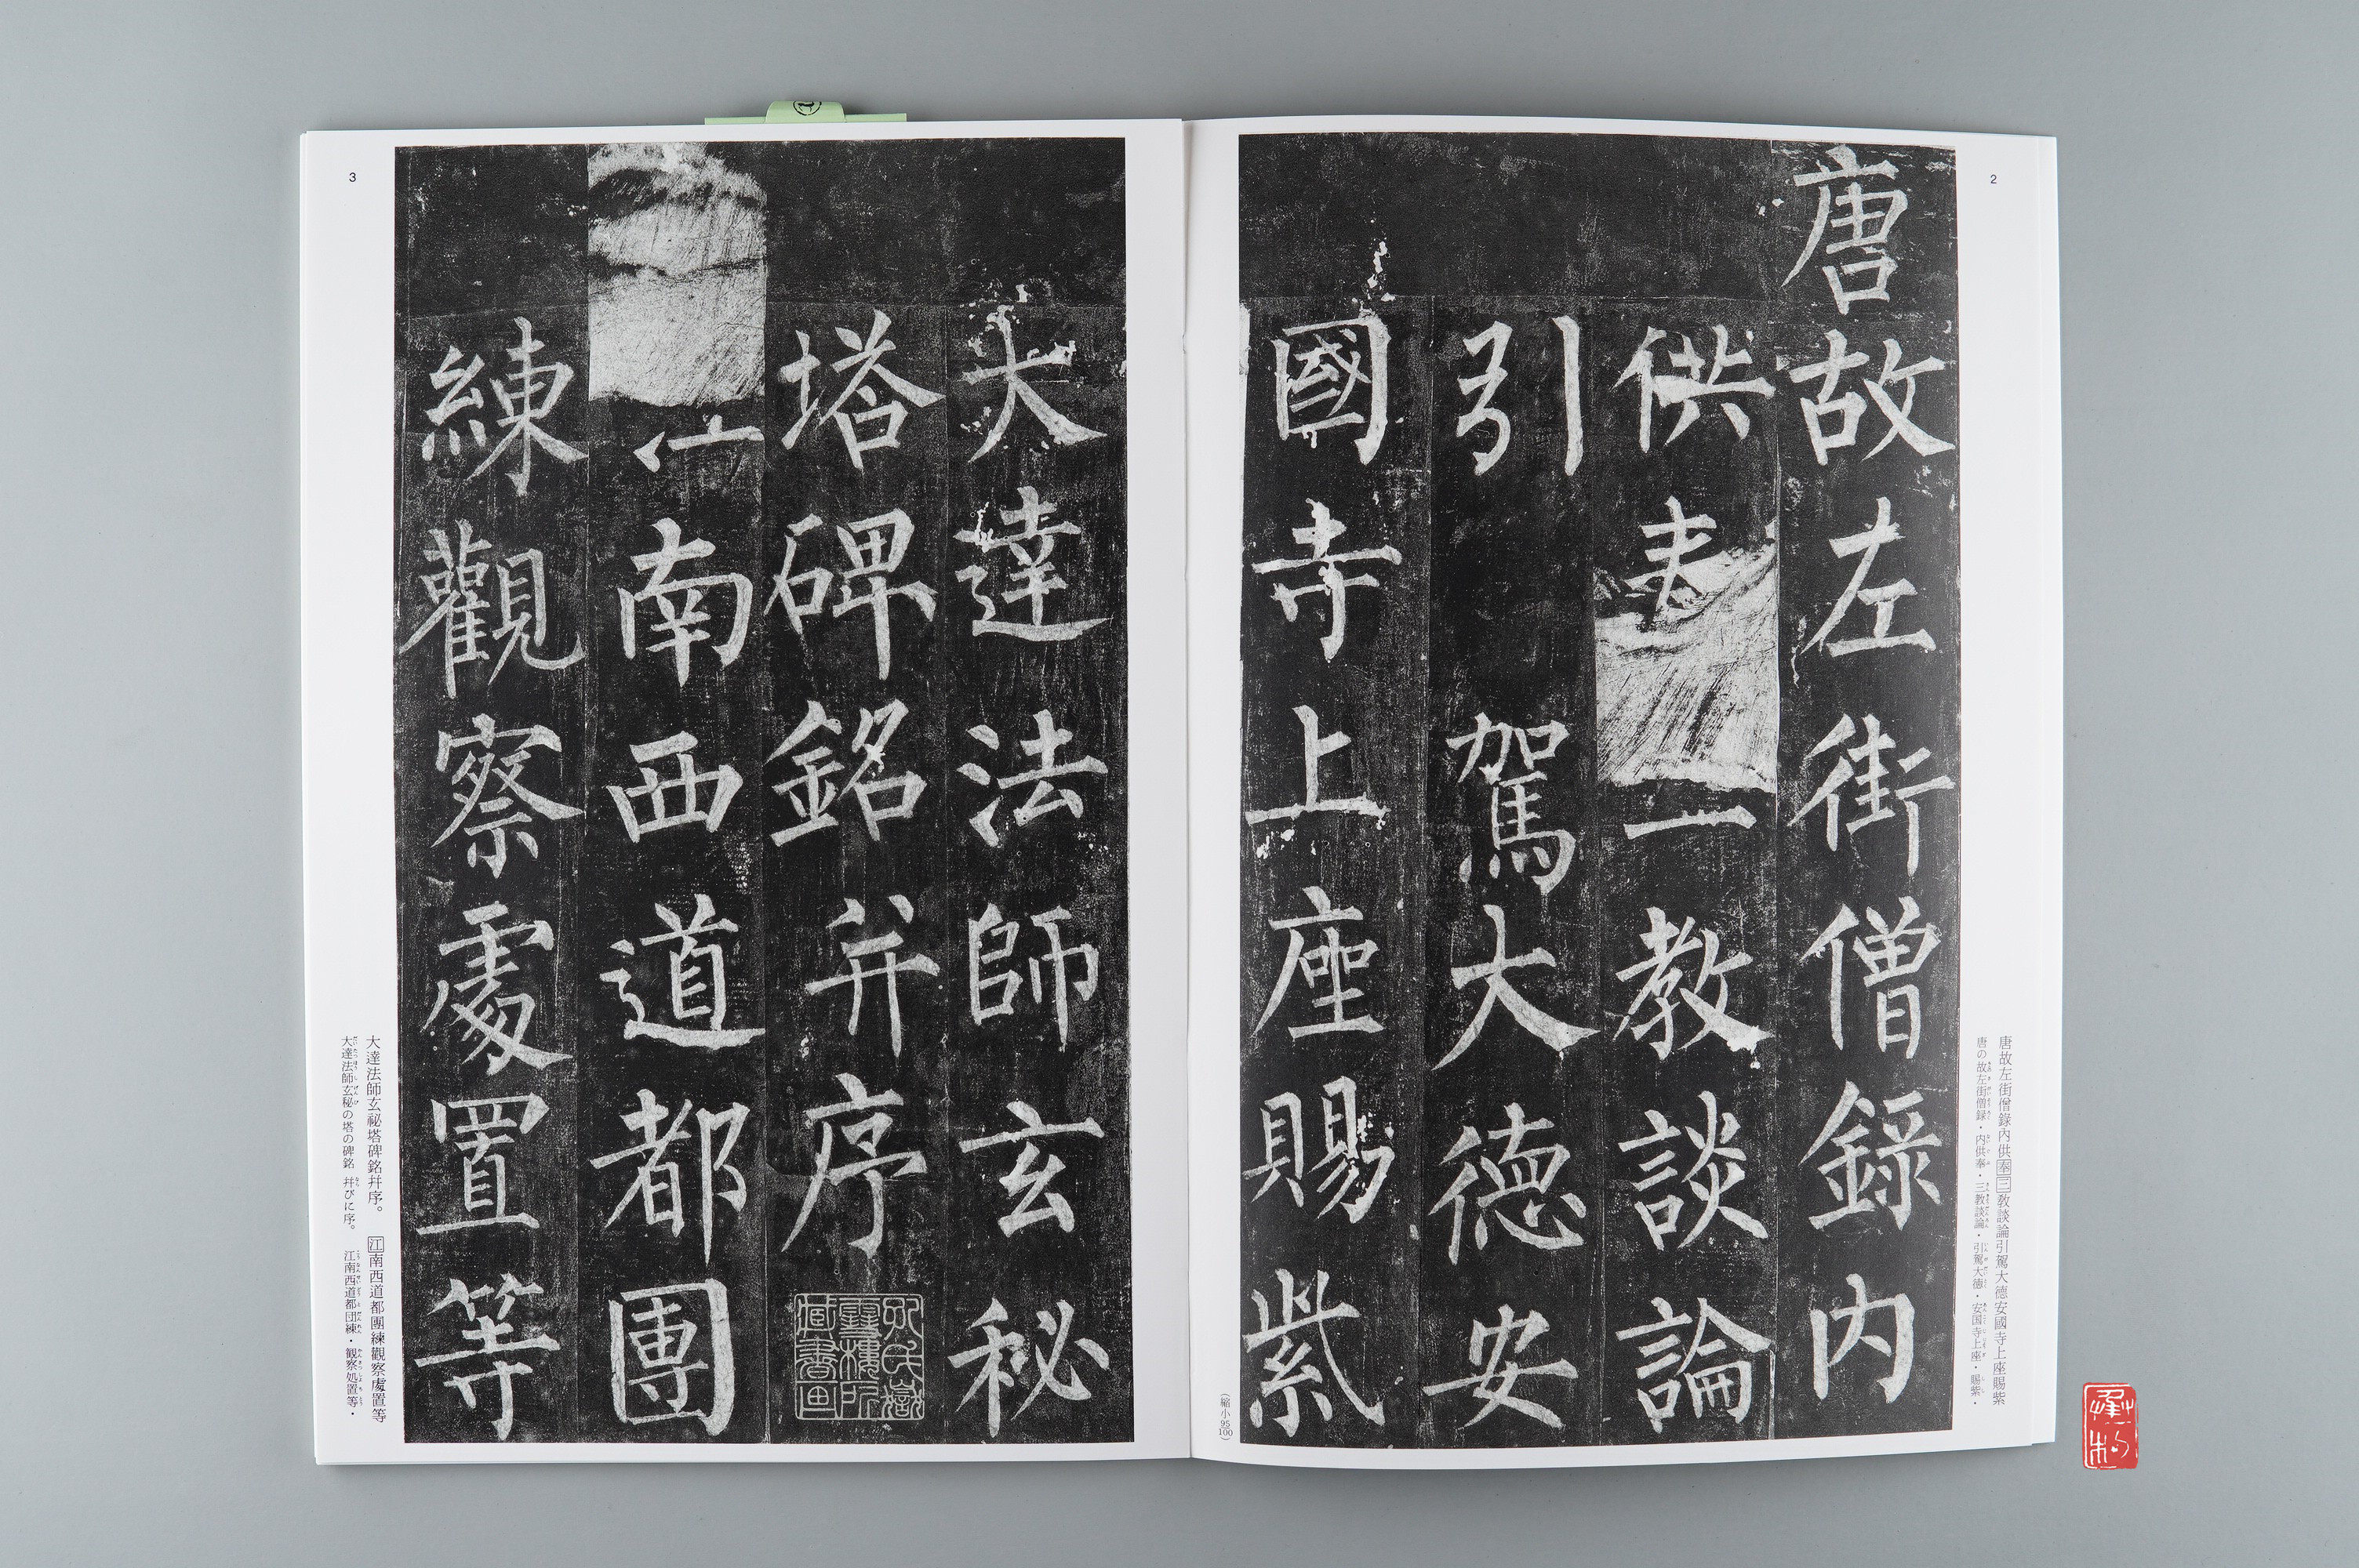 2
唐故左街僧錄内
供奉
一教談論
引 駕大德安
國寺上座賜紫
唐故左街僧錄內供奉三教談論引駕大德安國寺上座賜紫
唐の故左街僧録・内供奉・三教談論・引駕大徳・安国寺上座・賜紫・
(縮小95/100)
3
大達法師玄秘
塔碑銘并序
南西道都團
練觀察處置等
大達法師玄祕塔碑銘幷序。 江南西道都團練觀察處置等
大達法師玄秘の塔の碑銘 幷びに序。 江南西道都団練・観察処置等・